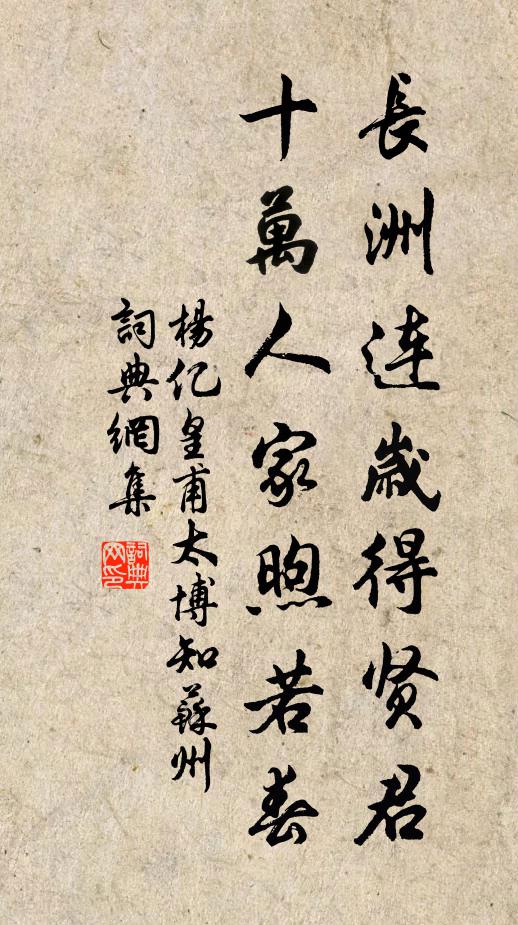 長洲连歲得贤君
十萬人家煦若春
楊亿皇甫太博知蘇州
詞典網集
詞典网印